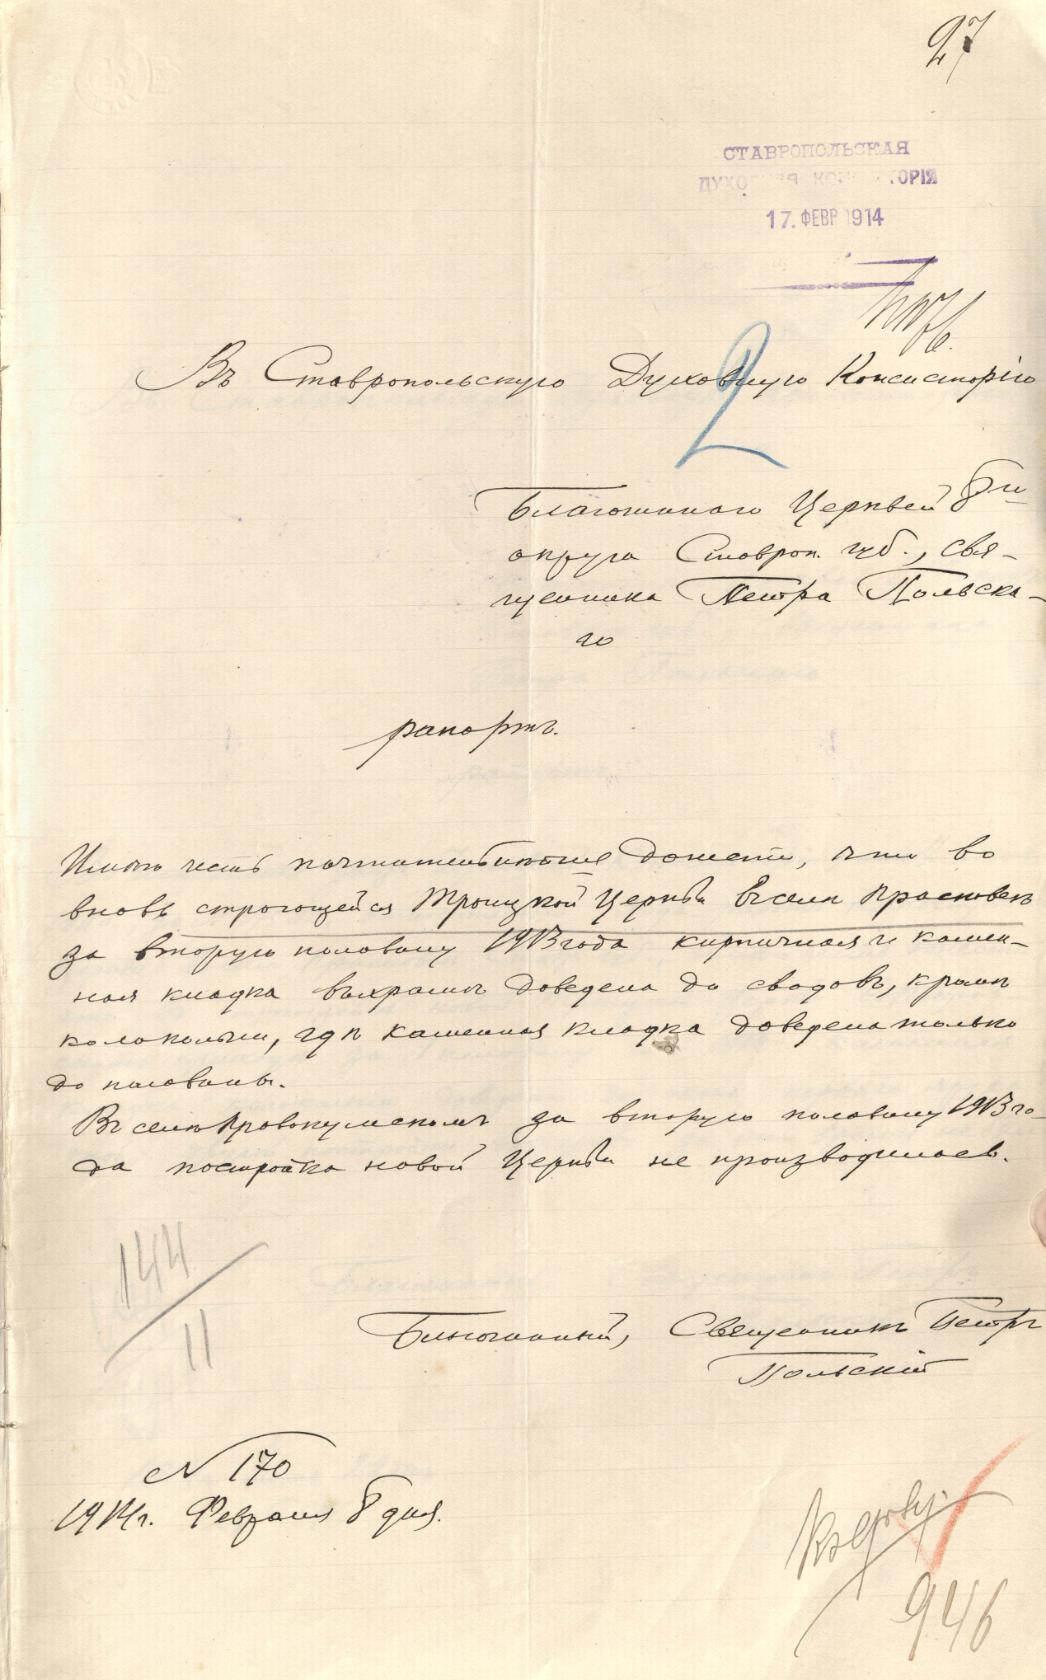 27
СТАВРОПОЛЬСКАЯ
ДУХОВНАЯ КОНСИСТОРІЯ
17. ФЕВР 1914
2
Въ Ставропольскую Духовную Консисторію
Благочиннаго Церквей 8го
округа Ставроп. губ., свя-
щенника Петра Польска-
го
рапортъ.
Имѣю честь почтительнѣйше донести, что во
вновь строющейся Троицкой Церкви въ селѣ Прасковеѣ
за вторую половину 1913 года кирпичная и камен-
ная кладка въ храмѣ доведена до сводовъ, кромѣ
колокольни, гдѣ каменная кладка доведена только
до половины.
Въ селѣ Правокумскомъ за вторую половину 1913 го-
да постройка новой Церкви не производилась.
144
11
Благочинный, Священникъ Петръ
Польскій
N 170
1914 г. Февраля 8 дня.
946